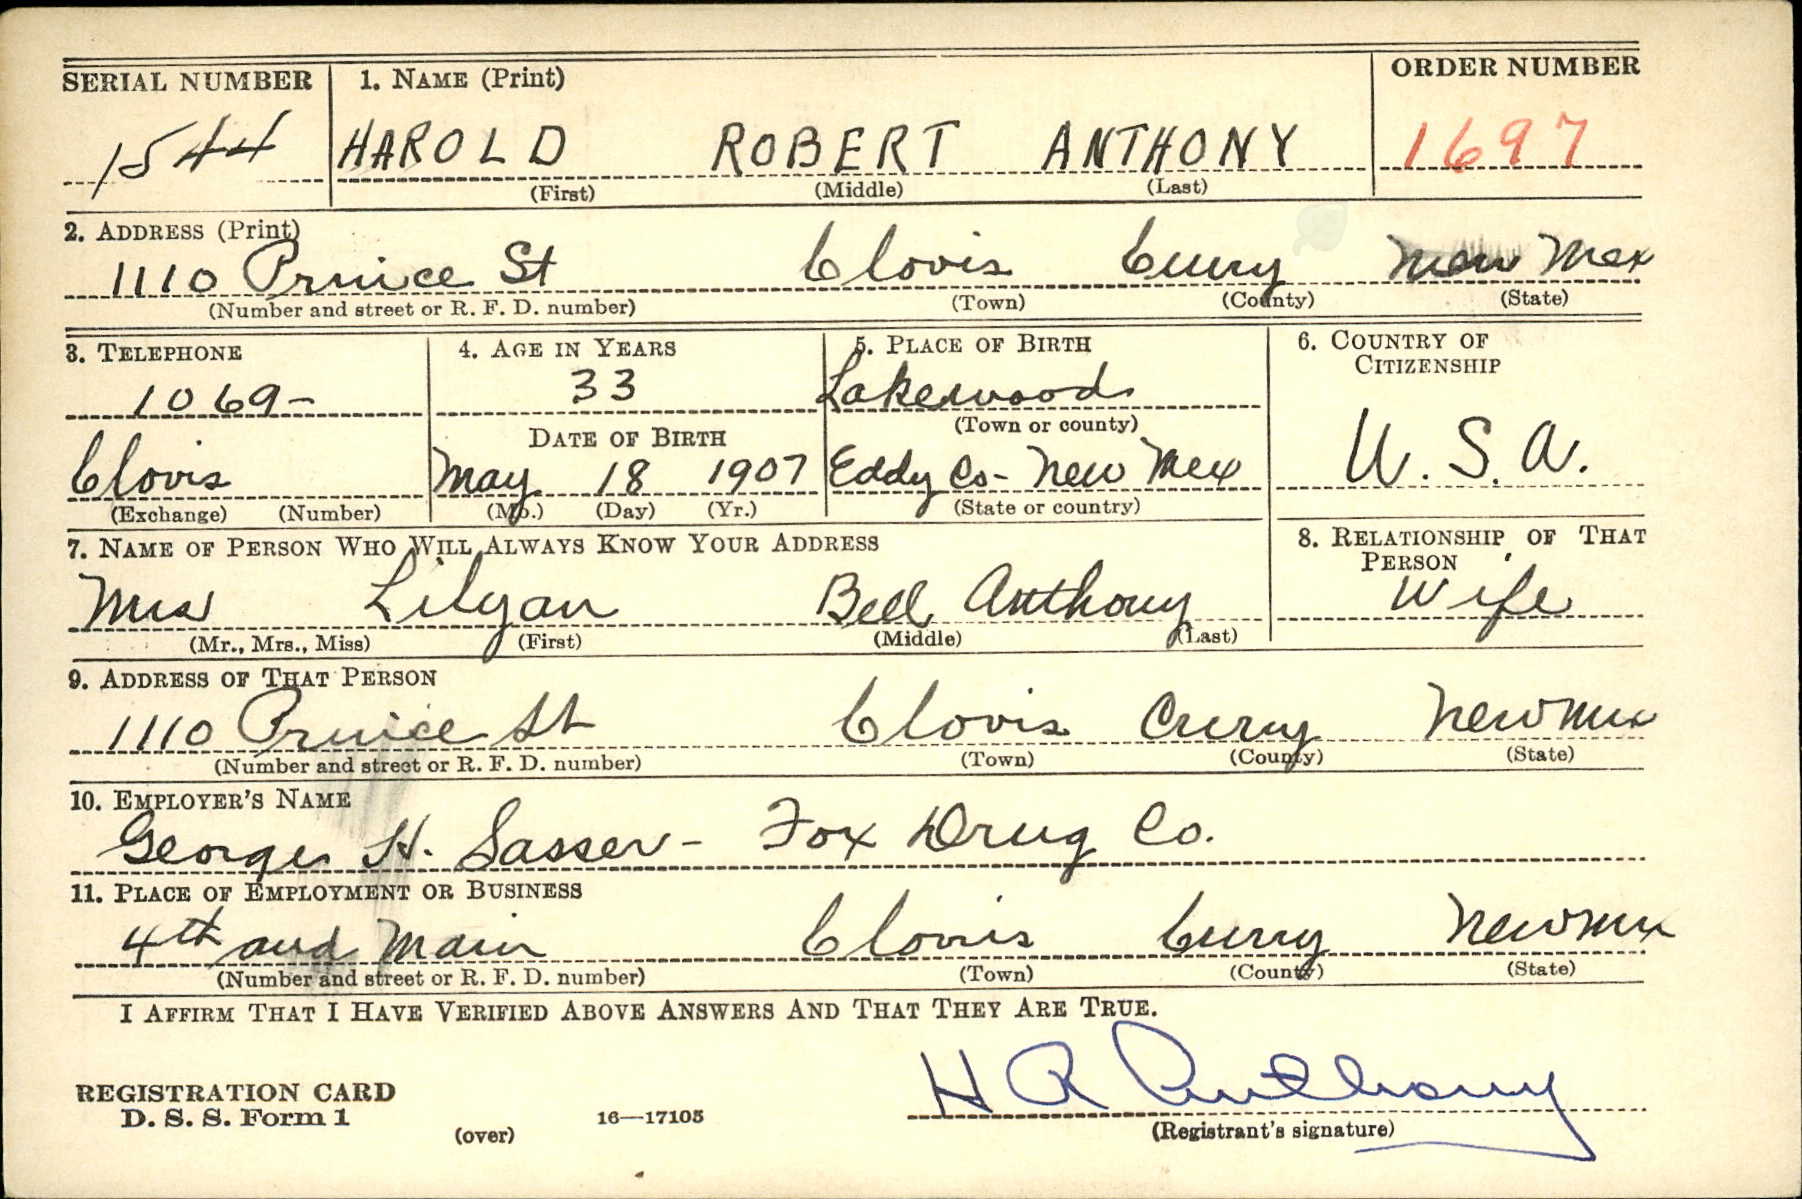 SERIAL NUMBER 1. NAME (Print) ORDER NUMBER
1544 HAROLD ROBERT ANTHONY 1697
(First) (Middle) (Last)
2. ADDRESS (Print)
1110 Prince St Clovis Curry New Mex
(Number and street or R. F. D. number) (Town) (County) (State)
3. TELEPHONE 4. AGE IN YEARS 5. PLACE OF BIRTH 6. COUNTRY OF
CITIZENSHIP
1069- 33 Lakewood
(Town or county)
DATE OF BIRTH
Clovis May 18 1907 Eddy Co- New Mex U.S.A.
(Exchange) (Number) (Mo.) (Day) (Yr.) (State or country)
7. NAME OF PERSON WHO WILL ALWAYS KNOW YOUR ADDRESS 8. RELATIONSHIP OF THAT
PERSON
Mrs Lilyan Bell Anthony Wife
(Mr., Mrs., Miss) (First) (Middle) (Last)
9. ADDRESS OF THAT PERSON
1110 Prince St Clovis Curry New Mex
(Number and street or R. F. D. number) (Town) (County) (State)
10. EMPLOYER'S NAME
George H. Sasser - Fox Drug Co.
11. PLACE OF EMPLOYMENT OR BUSINESS
4th and Main Clovis Curry New Mex
(Number and street or R. F. D. number) (Town) (County) (State)
I AFFIRM THAT I HAVE VERIFIED ABOVE ANSWERS AND THAT THEY ARE TRUE.
H R Anthony
REGISTRATION CARD
D. S. S. Form 1 (over) 16—17105 (Registrant's signature)